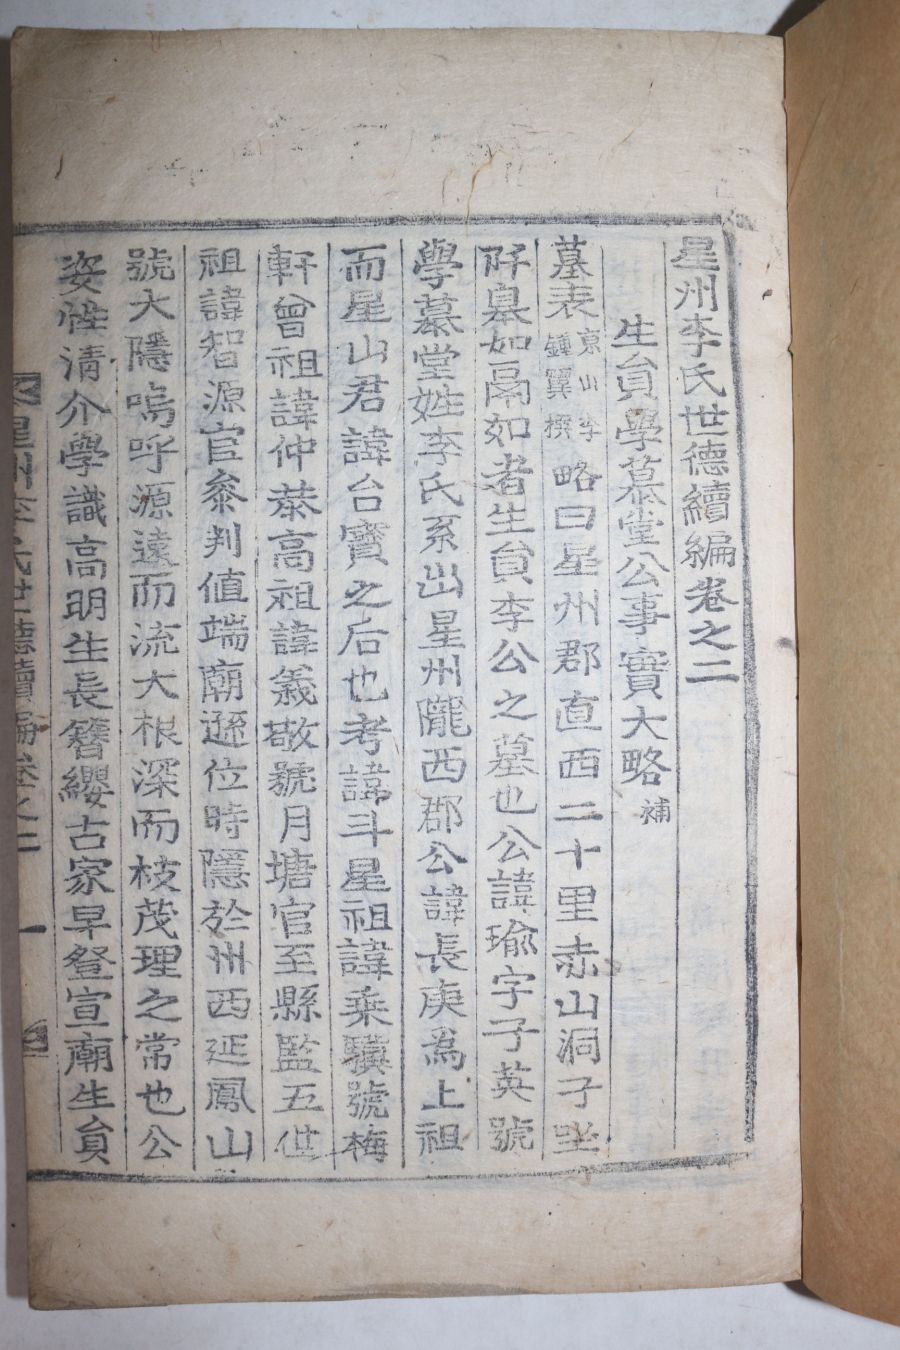 星州李氏世德續編卷之二
生員學慕堂公事實大略 補
墓表 京山李鍾翼撰 略曰星州郡直西二十里赤山洞子坐
阡皐如鬲如者生員李公之墓也公諱瑜字子英號
學慕堂姓李氏系出星州隴西郡公諱長庚爲上祖
而星山君諱台寶之后也考諱斗星祖諱乘驥號梅
軒曾祖諱仲恭高祖諱義敬號月塘官至縣監五世
祖諱智源官叅判値端廟遜位時隱於州西延鳳山
號大隱嗚呼源遠而流大根深而枝茂理之常也公
姿性淸介學識高明生長簪纓古家早登宣廟生員
星州李氏世德續編卷之二 一